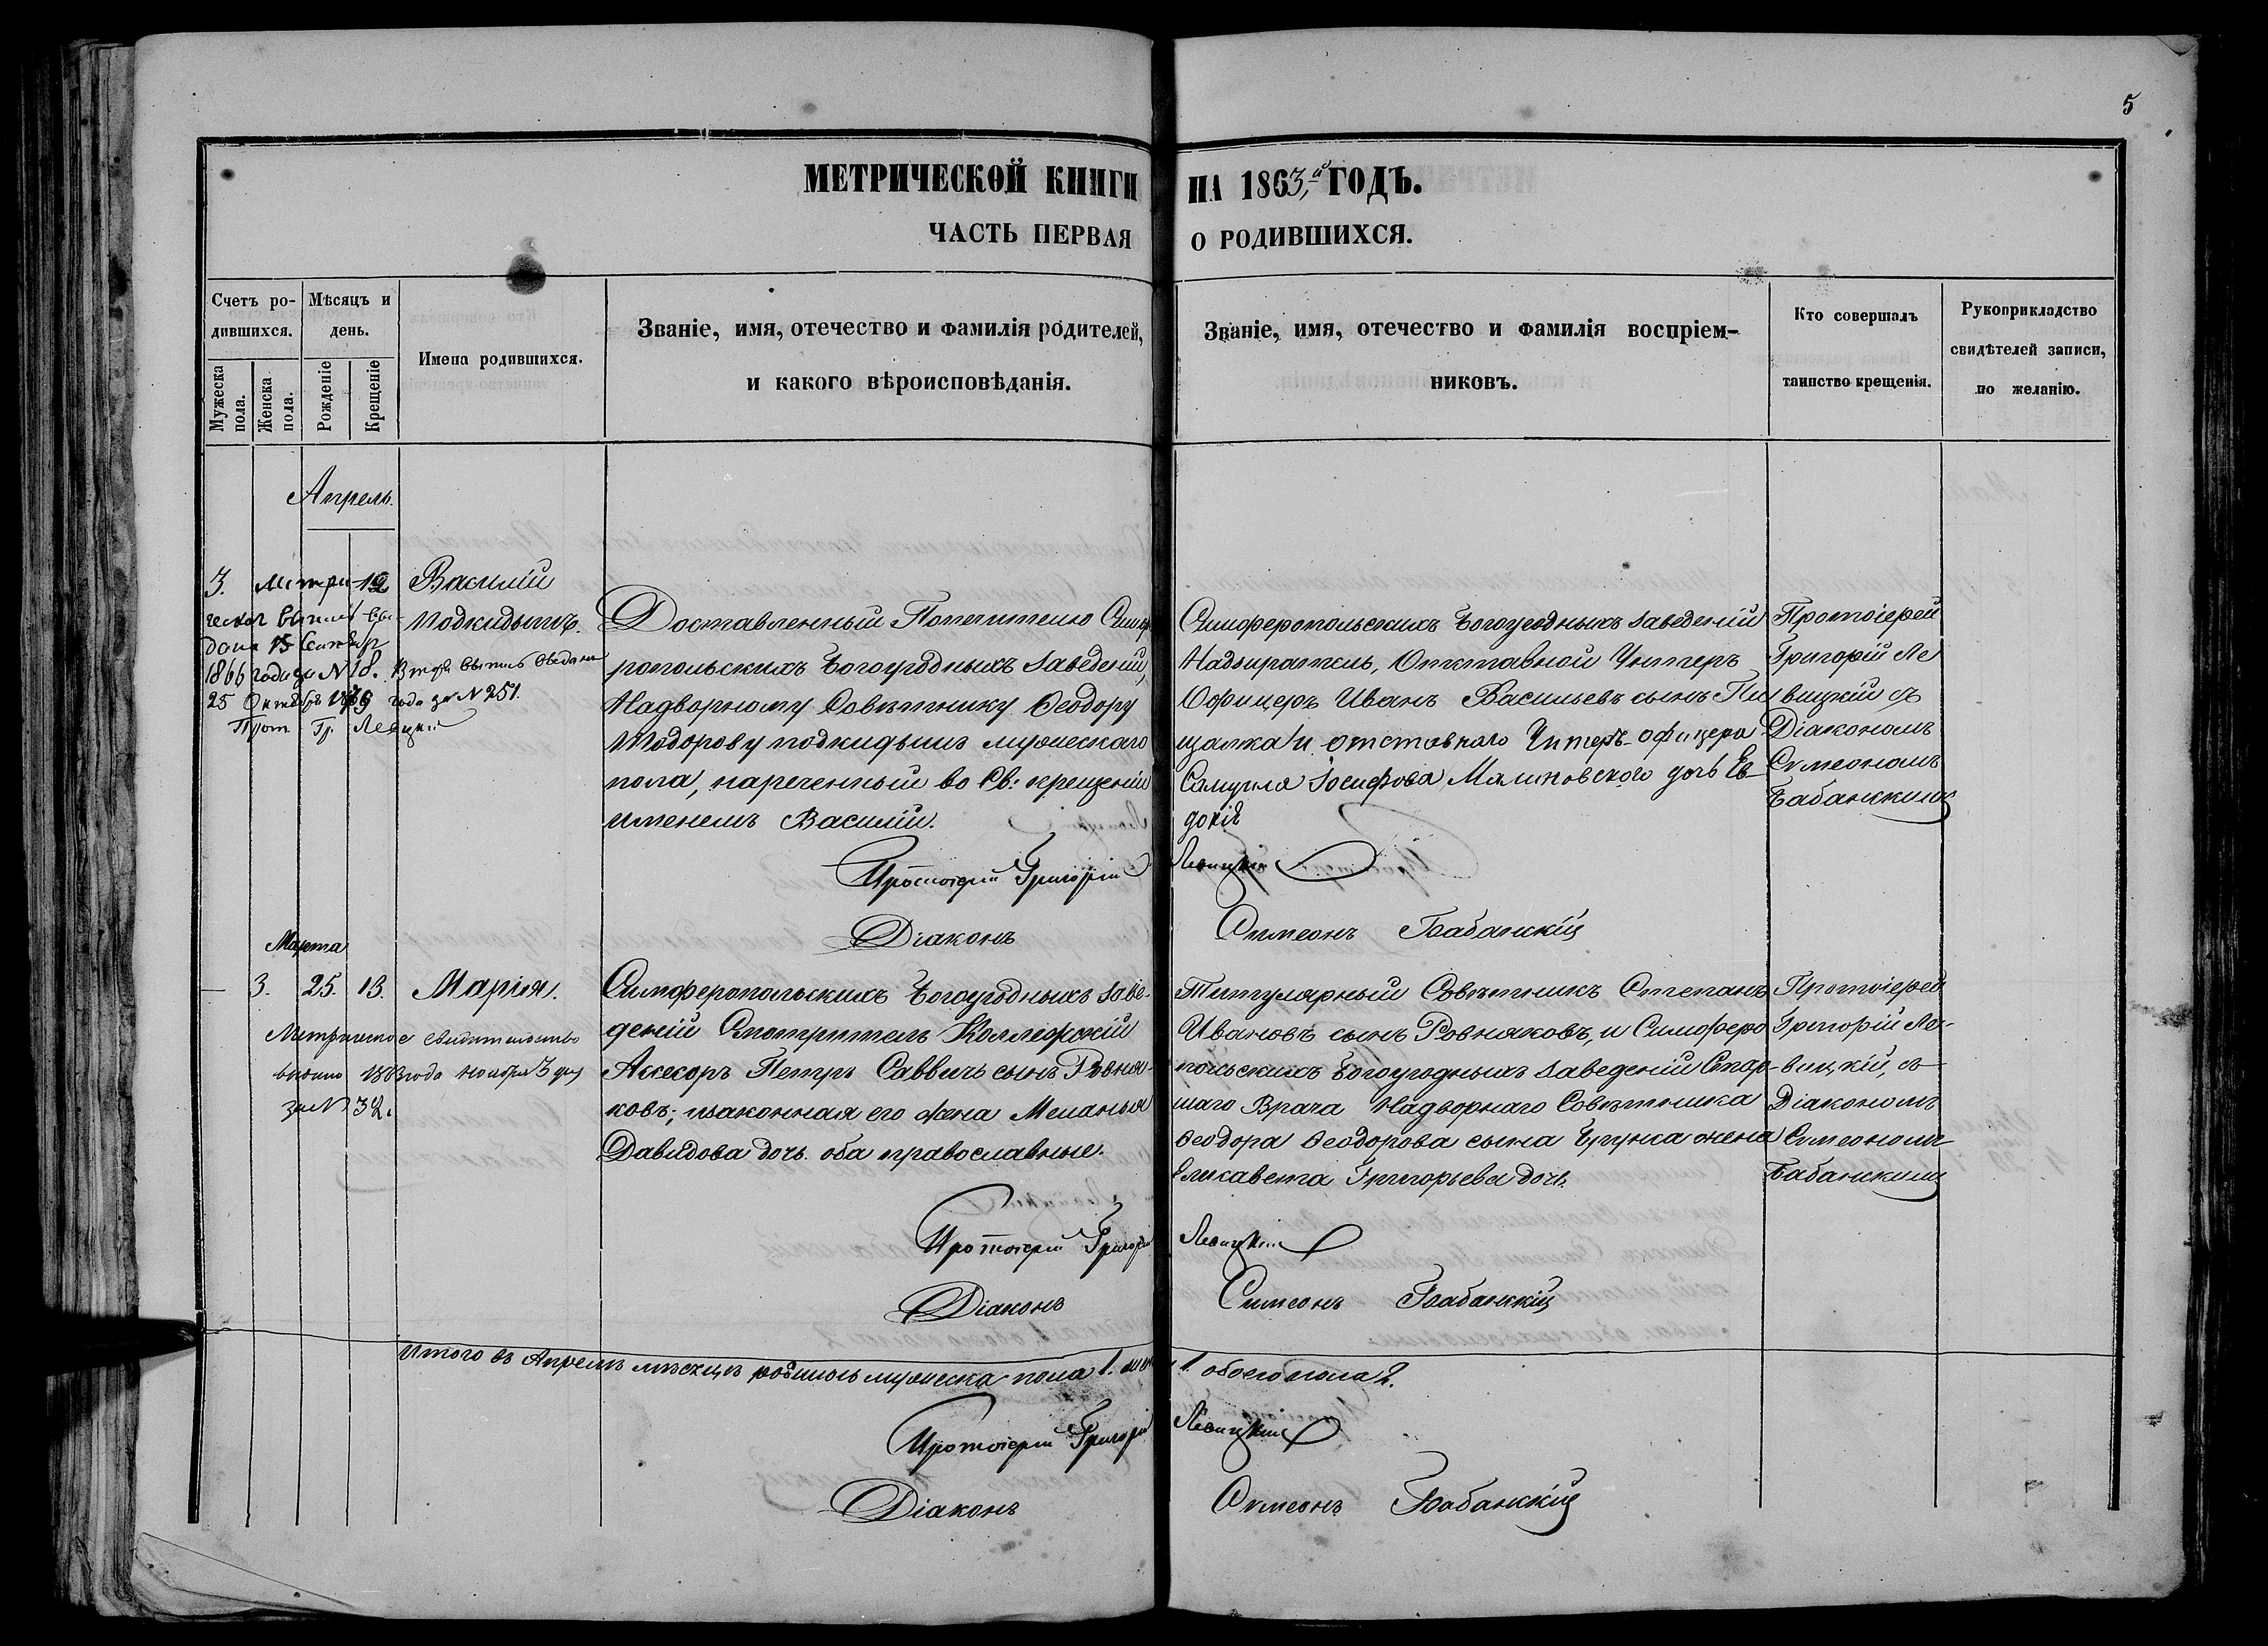 5
МЕТРИЧЕСКОЙ КНИГИ НА 1863,й ГОДЪ.
ЧАСТЬ ПЕРВАЯ О РОДИВШИХСЯ.
Счетъ ро-
дившихся.
Мужеска
пола.
Женска
пола.
Мѣсяцъ и
день.
Рожденіе
Крещеніе
Имена родившихся.
Званіе, имя, отечество и фамилія родителей,
и какого вѣроисповѣданія.
Званіе, имя, отечество и фамилія воспріем-
никовъ.
Кто совершалъ
таинство крещенія.
Рукоприкладство
свидѣтелей записи,
по желанію.
Апрель.
3.
12
Метри-
ческая выпись вы-
дана 15 Сентября
1866 года за N 18. Втора выпись выдана
25 Октября года за N 251.
Прот Гр. Левицкій
Василій
подкидышъ.
Доставленный Попечителю Симфе
ропольскихъ Богоугодныхъ заведеній,
Надворному Совѣтнику Ѳеодору
Тодорову подкидышъ мужескаго
пола, нареченный во Св: крещеніи
именемъ Василій.
Симферопольскихъ Богоугодныхъ заведеній
Надзиратель, Отставной Унтеръ
Офицеръ Иванъ Васильевъ сынъ Пи
щалка и отставного Унтеръ-офицера
Самуила Іосифова Малиновского дочь Ев-
докія
Протоіерей
Григорій Ле
вицкій съ
Діакономъ
Симеономъ
Бабанскимъ
Протоіерей Григорій Левицкій
Діаконъ Симеонъ Бабанскій
Марта
3. 25. 13. Марія.
Метрическое свидетельство
выдано 1883 года ноября 3 дня
за N 32.
Симферопольскихъ Богоугодныхъ заве-
деній Смотритель Коллежскій
Ассесоръ Петръ Саввичъ сынъ Ровня-
ковъ; и законная его жена Меланья
Давидова дочь оба православные.
Титулярный Совѣтникъ Степанъ
Ивановъ сынъ Ровняковъ, и Симферо
польскихъ Богоугодныхъ заведеній Стар-
шаго Врача Надворнаго Совѣтника
Ѳеодора Ѳеодорова сына жена
Елисавета Григорьева дочь.
Протоіерей
Григорій Ле-
вицкій, съ
Діакономъ
Симеономъ
Бабанскимъ
Протоіерей Григорій Левицкій
Діаконъ Симеонъ Бабанскій
Итого въ Апрелѣ мѣсяцѣ родилось мужеска пола 1. жен 1. обоего пола 2.
Протоіерей Григорій Левицкій
Діаконъ Симеонъ Бабанскій